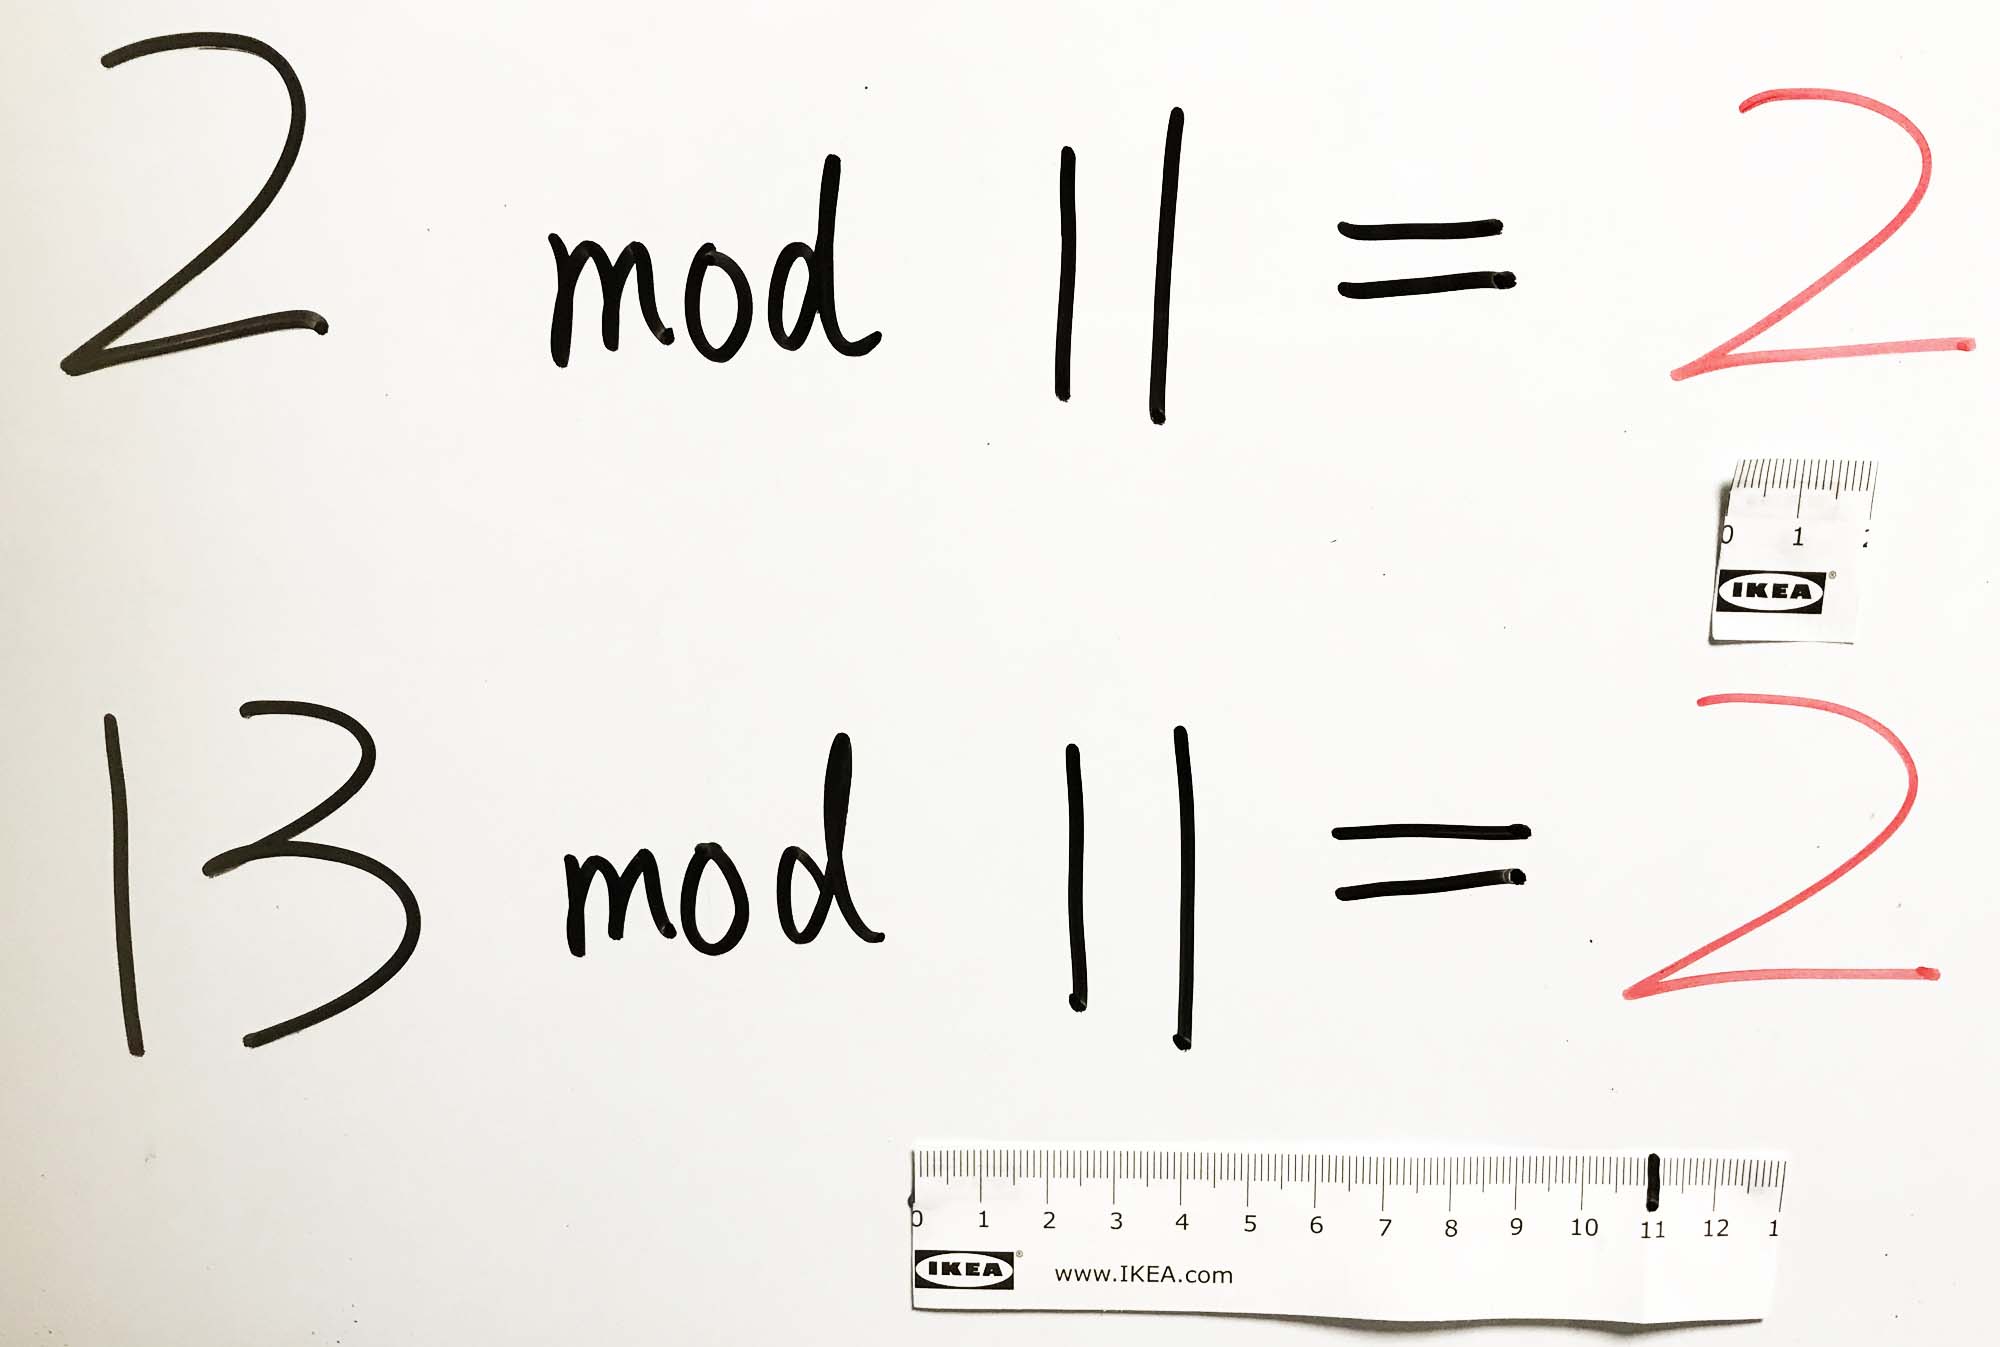 2 mod 11 = 2
0 1
IKEA®
13 mod 11 = 2
0 1 2 3 4 5 6 7 8 9 10 11 12 1
IKEA® www.IKEA.com